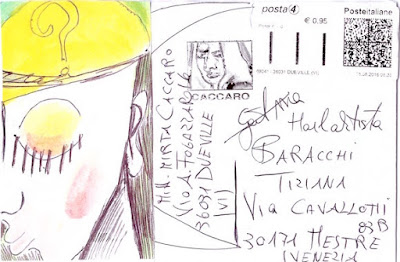 ?
posta 4
€ 0,95
Posteitaliane
36031 DUEVILLE (VI)
CACCARO
Mitt. MIRTA CACCARO
Via A. FOGAZZARO
36031 DUEVILLE
(VI)
Mailartista
BARACCHI
TIZIANA
Via CAVALLOTTI
83B
30171 MESTRE
VENEZIA